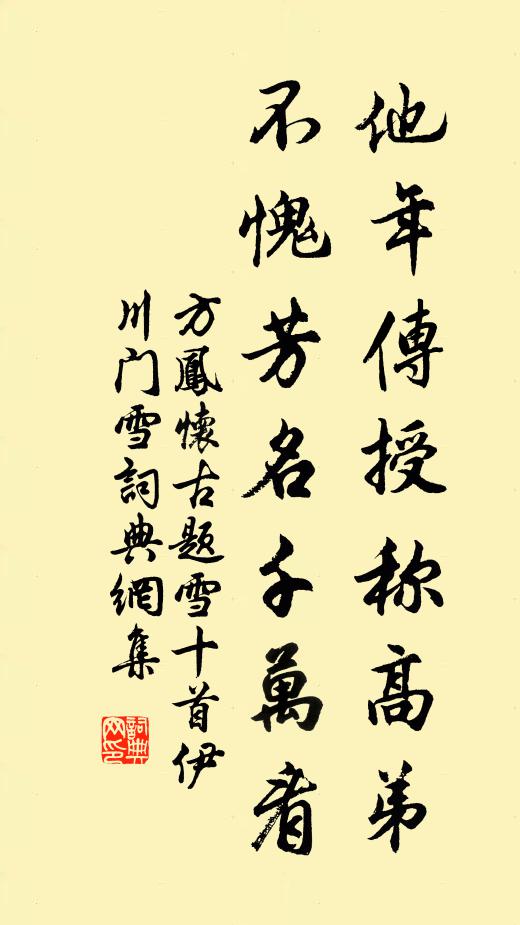 他年傳授称高弟
不愧芳名千萬看
方鳳懷古題雪十首伊
川门雪詞典網集
詞典
网印